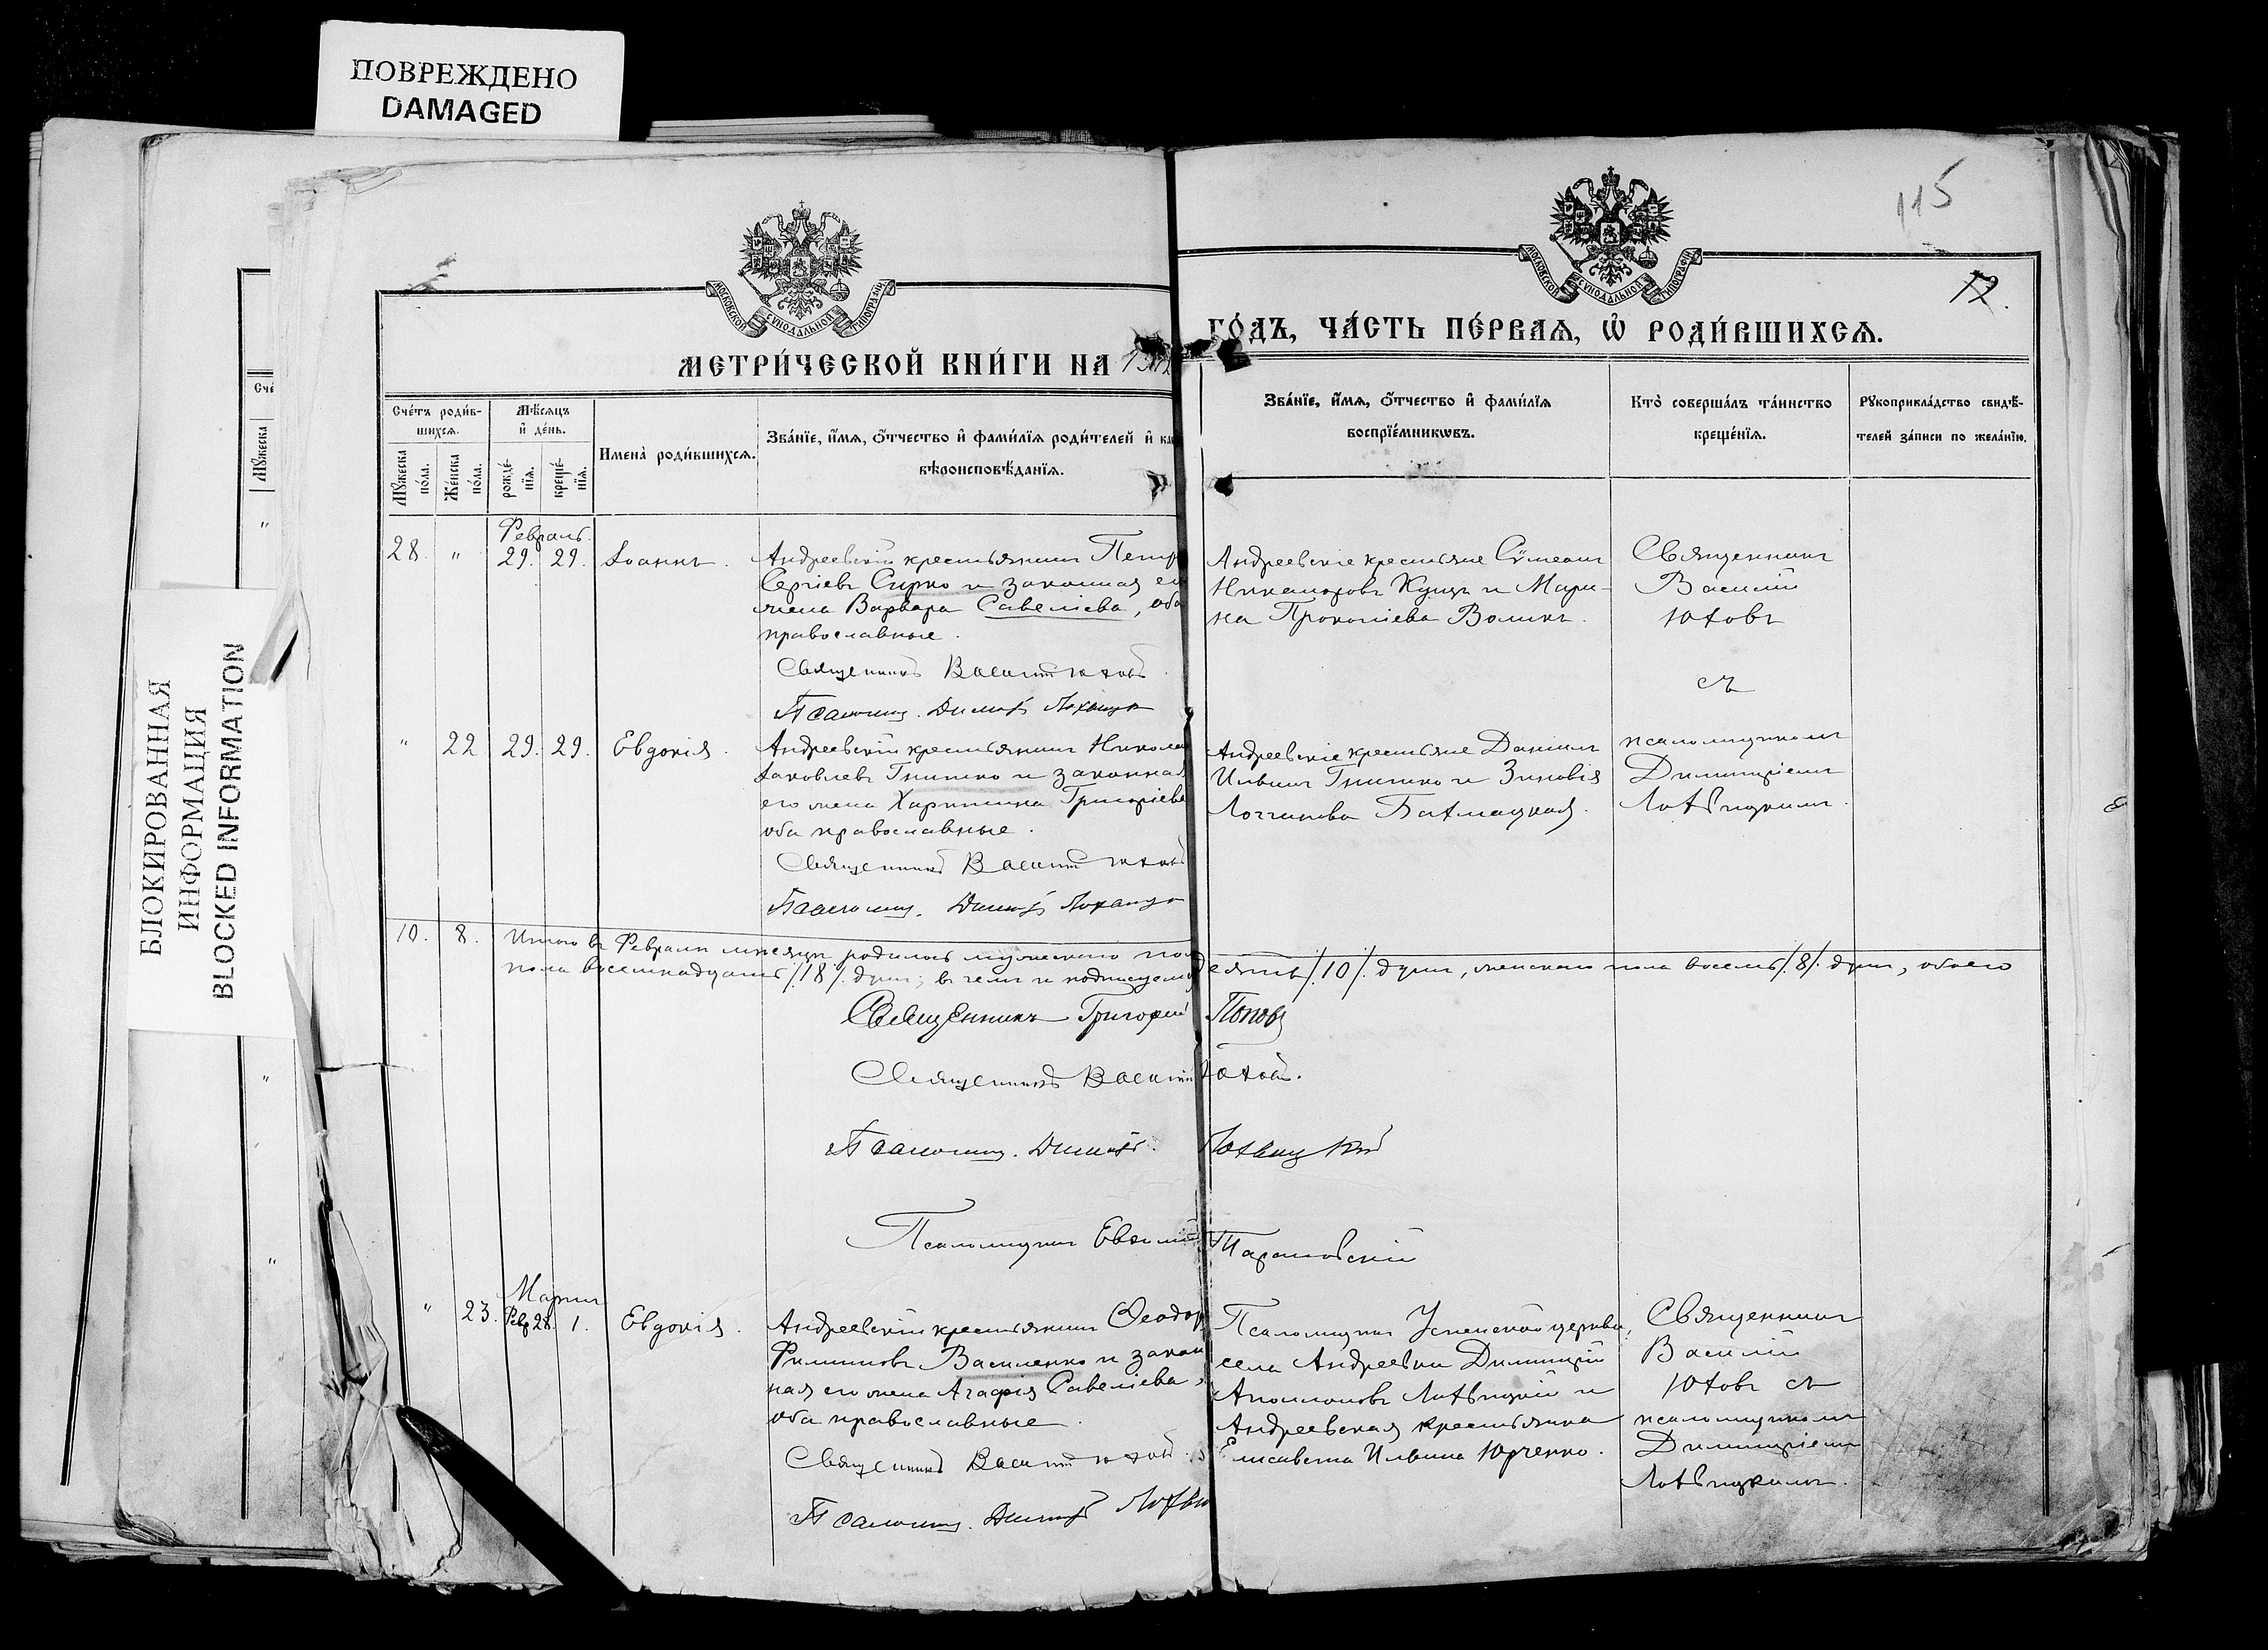 ПОВРЕЖДЕНО
DAMAGED
БЛОКИРОВАННАЯ
ИНФОРМАЦИЯ
BLOCKED INFORMATION
115
12.
МОСКОВСКОЙ СѴНОДАЛЬНОЙ ТИПОГРАФІИ
МОСКОВСКОЙ СѴНОДАЛЬНОЙ ТИПОГРАФІИ
МЕТРИ́ЧЕСКОЙ КНИ́ГИ НА 1912
ГО́ДЪ, ЧА́СТЬ ПЕ́РВАЯ, Ѡ҆ РОДИ́ВШИХСЯ.
Сче́тъ роди́в-
шихся.
Мѣ́сяцъ
и҆ де́нь.
Мꙋ́жеска
по́ла.
Же́нска
по́ла.
рожде́-
нїя.
креще́-
нїя.
Имена̀ роди́вшихся.
Зва́нїе, и҆́мя, ѻ҆́тчество и҆ фами́лїя роди́телей и҆ ка
вѣроисповѣ́данїя.
Зва́нїе, и҆́мя, ѻ҆́тчество и҆ фами́лїя
воспрїе́мникѡвъ.
Кто̀ соверша́лъ та́инство
креще́нїя.
Рꙋкоприкла́дство свидѣ́-
телей за́писи по жела́нїю.
Февраль.
28. " 29. 29. Іоаннъ.
Андреевскій крестьянинъ Петр
Сергіевъ Сирко и законная ег
жена Варвара Савеліева, оба
православные.
Священникъ Василій Юховъ.
Псаломщ. Димитр Лохвицк
Андреевскіе крестьяне Сѵмеонъ
Никаноровъ Куцъ и Мари-
на Прокопіева Воликъ.
Священникъ
Василій
Юховъ
съ
псаломщикомъ
Димитріемъ
Лохвицкимъ.
" 22 29. 29. Евдокія.
Андреевскій крестьянинъ Никола
Іаковлевъ Гнишко и законная
его жена Харитина Григоріева
оба православные.
Священникъ Василій Юховъ
Псаломщ. Димитр Лохвицк
Андреевскіе крестьяне Даніилъ
Ильинъ Гнишко и Зиновія
Логгинова Бахмацкая.
10. 8. Итого въ Февралѣ мѣсяцѣ родилось мужескаго пол десять /.10/. душъ, женскаго пола восемь /.8/. душъ, обоего
пола восемнадцать /.18/. душъ, въ чемъ и подписуем
Священникъ Григорій Поповъ
Священникъ Василій Юховъ.
Псаломщ. Димитр. Лохвицкій
Псаломщикъ Евѳимій Тарановскій
Мартъ
" 23. Фев 28. 1. Евдокія.
Андреевскій крестьянинъ Ѳеодор
Филипповъ Василенко и закон
ная его жена Агафія Савеліева,
оба православные.
Священникъ Василій Юховъ.
Псаломщ. Димитр Лохви
Псаломщикъ Успенской церкви,
села Андреевки Димитрій
Аполлоновъ Лохвицкій и
Андреевская крестьянка
Елисавета Ильина Юрченко.
Священникъ
Василій
Юховъ съ
псаломщикомъ
Димитріемъ
Лохвицкимъ.